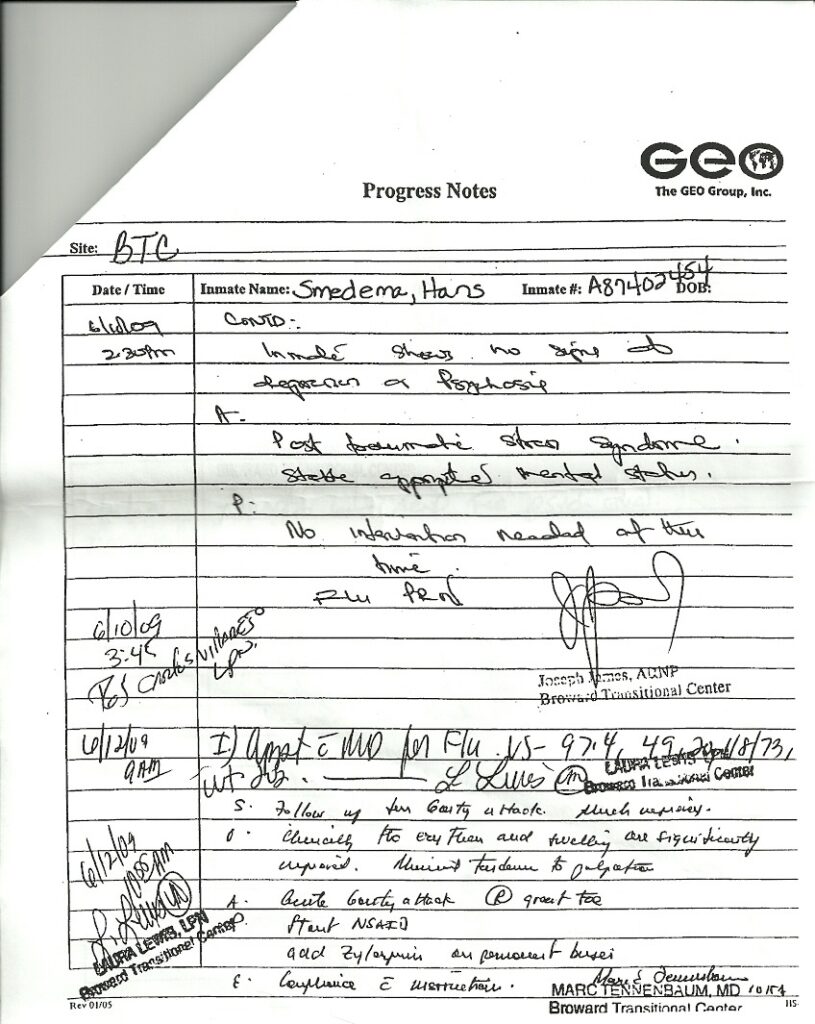 GEO
The GEO Group, Inc.
Progress Notes
Site: BTC
Date / Time
Inmate Name: Smedema, Hans
Inmate #: A87402454
DOB:
6/10/09
CONTD:-
2:30pm
Inmate shows no signs of
depression or Psychosis
A-
Post traumatic stress syndrome.
Stable appropriate mental status.
P:
No intervention needed at this
time.
F/u PRN
6/10/09
3:45
Carlos Villares LPN
Joseph James, ARNP
Broward Transitional Center
6/12/09
9AM
I) Appt c̄ MD for F/u. VS- 97.4, 49, 118/73,
WT
L Lewis
LAURA LEWIS
Broward Transitional Center
S. Follow up for Gouty attack. Much
O. Clinically the erythem and swelling are significantly
improved. to palpation
6/12/09
10:55 AM
L. Lewis
LAURA LEWIS, LPN
Broward Transitional Center
A. Acute Gouty attack (R) great toe
P. Start NSAID
add Zyloprim on permanent basis
E. Compliance c̄ instruction.
MARC TENNENBAUM, MD
Broward Transitional Center
Rev 01/05
HS-